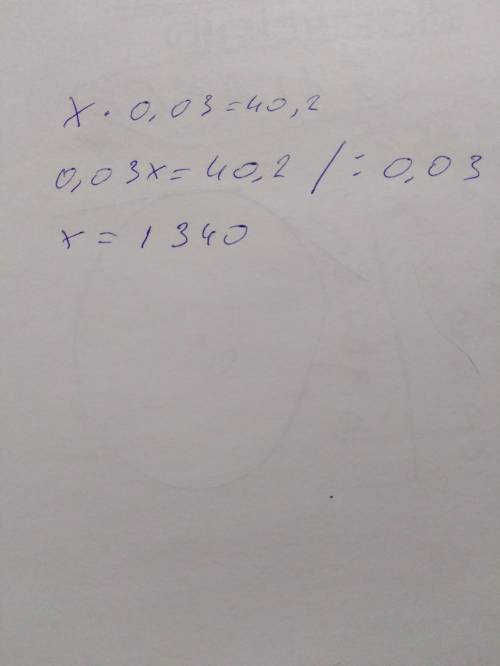 x · 0,03 = 40,2
0,03x = 40,2 / : 0,03
x = 1 340